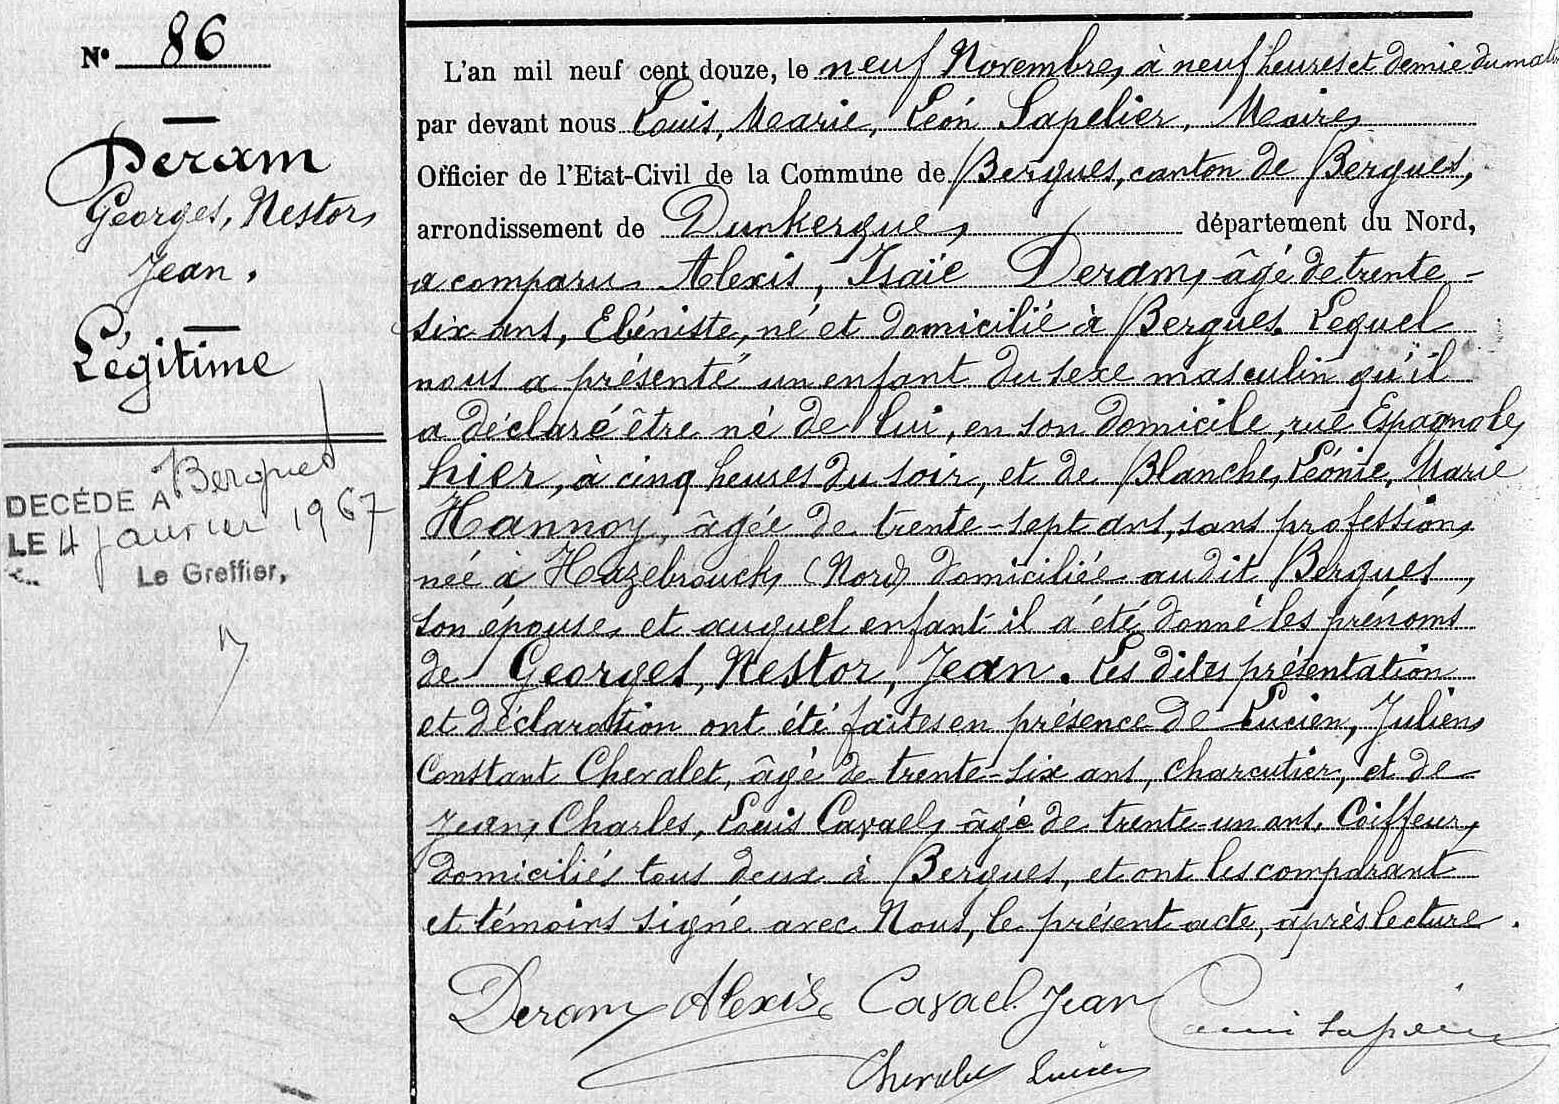 N° 86
Deram
Georges, Nestor,
Jean.
Légitime
DECÉDÉ A Bergues
LE 4 janvier 1967
Le Greffier,
L'an mil neuf cent douze, le neuf Novembre, à neuf heures et demie du matin
par devant nous Louis, Marie, Léon Sapelier, Maire,
Officier de l'Etat-Civil de la Commune de Bergues, canton de Bergues,
arrondissement de Dunkerque, département du Nord,
a comparu Alexis, Isaïe Deram, âgé de trente-
six ans, Ebéniste, né et domicilié à Bergues. Lequel
nous a présenté un enfant du sexe masculin qu'il
a déclaré être né de lui, en son domicile, rue Espagnole,
hier, à cinq heures du soir, et de Blanche, Léonie, Marie
Hannoy, âgée de trente-sept ans, sans profession,
née à Hazebrouck, (Nord) domiciliée audit Bergues,
son épouse, et auquel enfant il a été donné les prénoms
de Georges, Nestor, Jean. Les dites présentation
et déclaration ont été faites en présence de Lucien, Julien,
Constant Chevalet, âgé de trente-six ans, charcutier, et de
Jean, Charles, Louis Cavael, âgé de trente-un ans, Coiffeur,
domiciliés tous deux à Bergues, et ont les comparant
et témoins signé avec Nous, le présent acte, après lecture.
Deram Alexis Cavael Jean
Chevalet Lucien